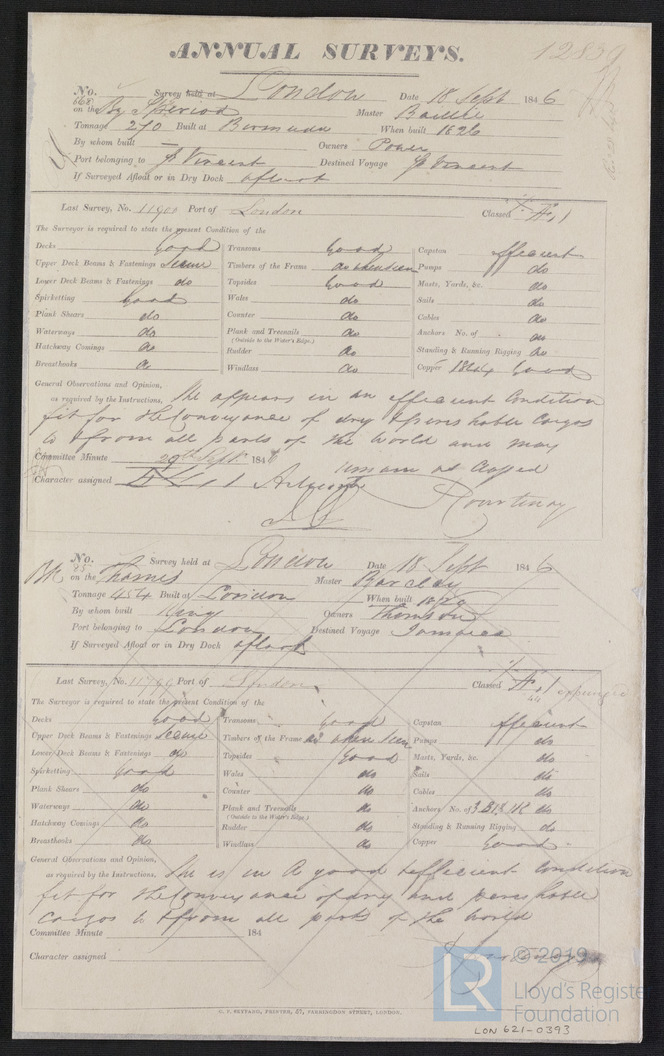 ANNUAL SURVEYS.
12839
No. Survey held at London Date 18 Sept 1846
668 on the Bg Master
Tonnage 270 Built at Bermuda When built 1826
By whom built — Owners Power
Port belonging to St Vincent Destined Voyage St Vincent
If Surveyed Afloat or in Dry Dock afloat
Last Survey, No. 11901 Port of London Classed Æ 1
The Surveyor is required to state the present Condition of the
Decks Good Transoms Good Capstan efficient
Upper Deck Beams & Fastenings Secure Timbers of the Frame as when seen Pumps do
Lower Deck Beams & Fastenings do Topsides Good Masts, Yards, &c. do
Spirketting Good Wales do Sails do
Plank Shears do Counter do Cables do
Waterways do Plank and Treenails do Anchors No. of do
(Outside to the Water's Edge.)
Hatchway Comings do Rudder do Standing & Running Rigging do
Breasthooks do Windlass do Copper 1844 Good
General Observations and Opinion,
as required by the Instructions, She appears in an efficient Condition
fit for the Conveyance of dry & perishable Cargos
to & from all parts of the World and may
Committee Minute 29th Sept 1846 remain as Classed
Character assigned Courtenay
No. Survey held at London Date 18 Sept 1846
BK 25 on the Thames Master Barclay
Tonnage 454 Built at London When built 1829
By whom built King Owners Thomson
Port belonging to London Destined Voyage Jamaica
If Surveyed Afloat or in Dry Dock afloat
Last Survey, No. 11799 Port of London Classed Æ 1 expunged
44
The Surveyor is required to state the present Condition of the
Decks Good Transoms Good Capstan efficient
Upper Deck Beams & Fastenings Secure Timbers of the Frame as when seen Pumps do
Lower Deck Beams & Fastenings do Topsides Good Masts, Yards, &c. do
Spirketting Good Wales do Sails do
Plank Shears do Counter do Cables do
Waterways do Plank and Treenails do Anchors No. of 3 B 1 S 1 K do
(Outside to the Water's Edge.)
Hatchway Comings do Rudder do Standing & Running Rigging do
Breasthooks do Windlass do Copper Good
General Observations and Opinion,
as required by the Instructions, She is in a good & efficient Condition
fit for the Conveyance of dry and perishable
Cargos to & from all parts of the World
Committee Minute 184
Character assigned
G. F. SEYFANG, PRINTER, 57, FARRINGDON STREET, LONDON.
LR © 2019
Lloyd's Register
Foundation
LON 621-0393